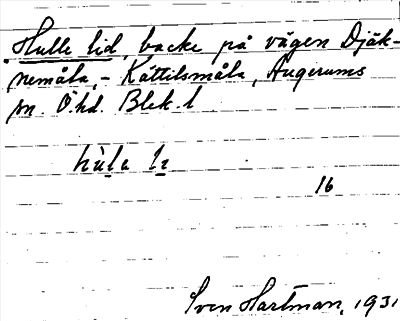 Hulle lid, backe på vägen Djäk-
nemåla, - Kättilsmåla, Augerums
sn. Ö. hd. Blek. l
16
Sven Hartman, 1931